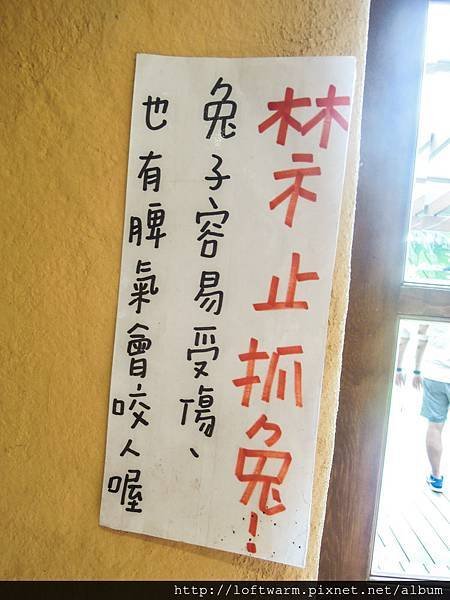 禁止抓兔!
兔子容易受傷、
也有脾氣會咬人喔
http://loftwarm.pixnet.net/album